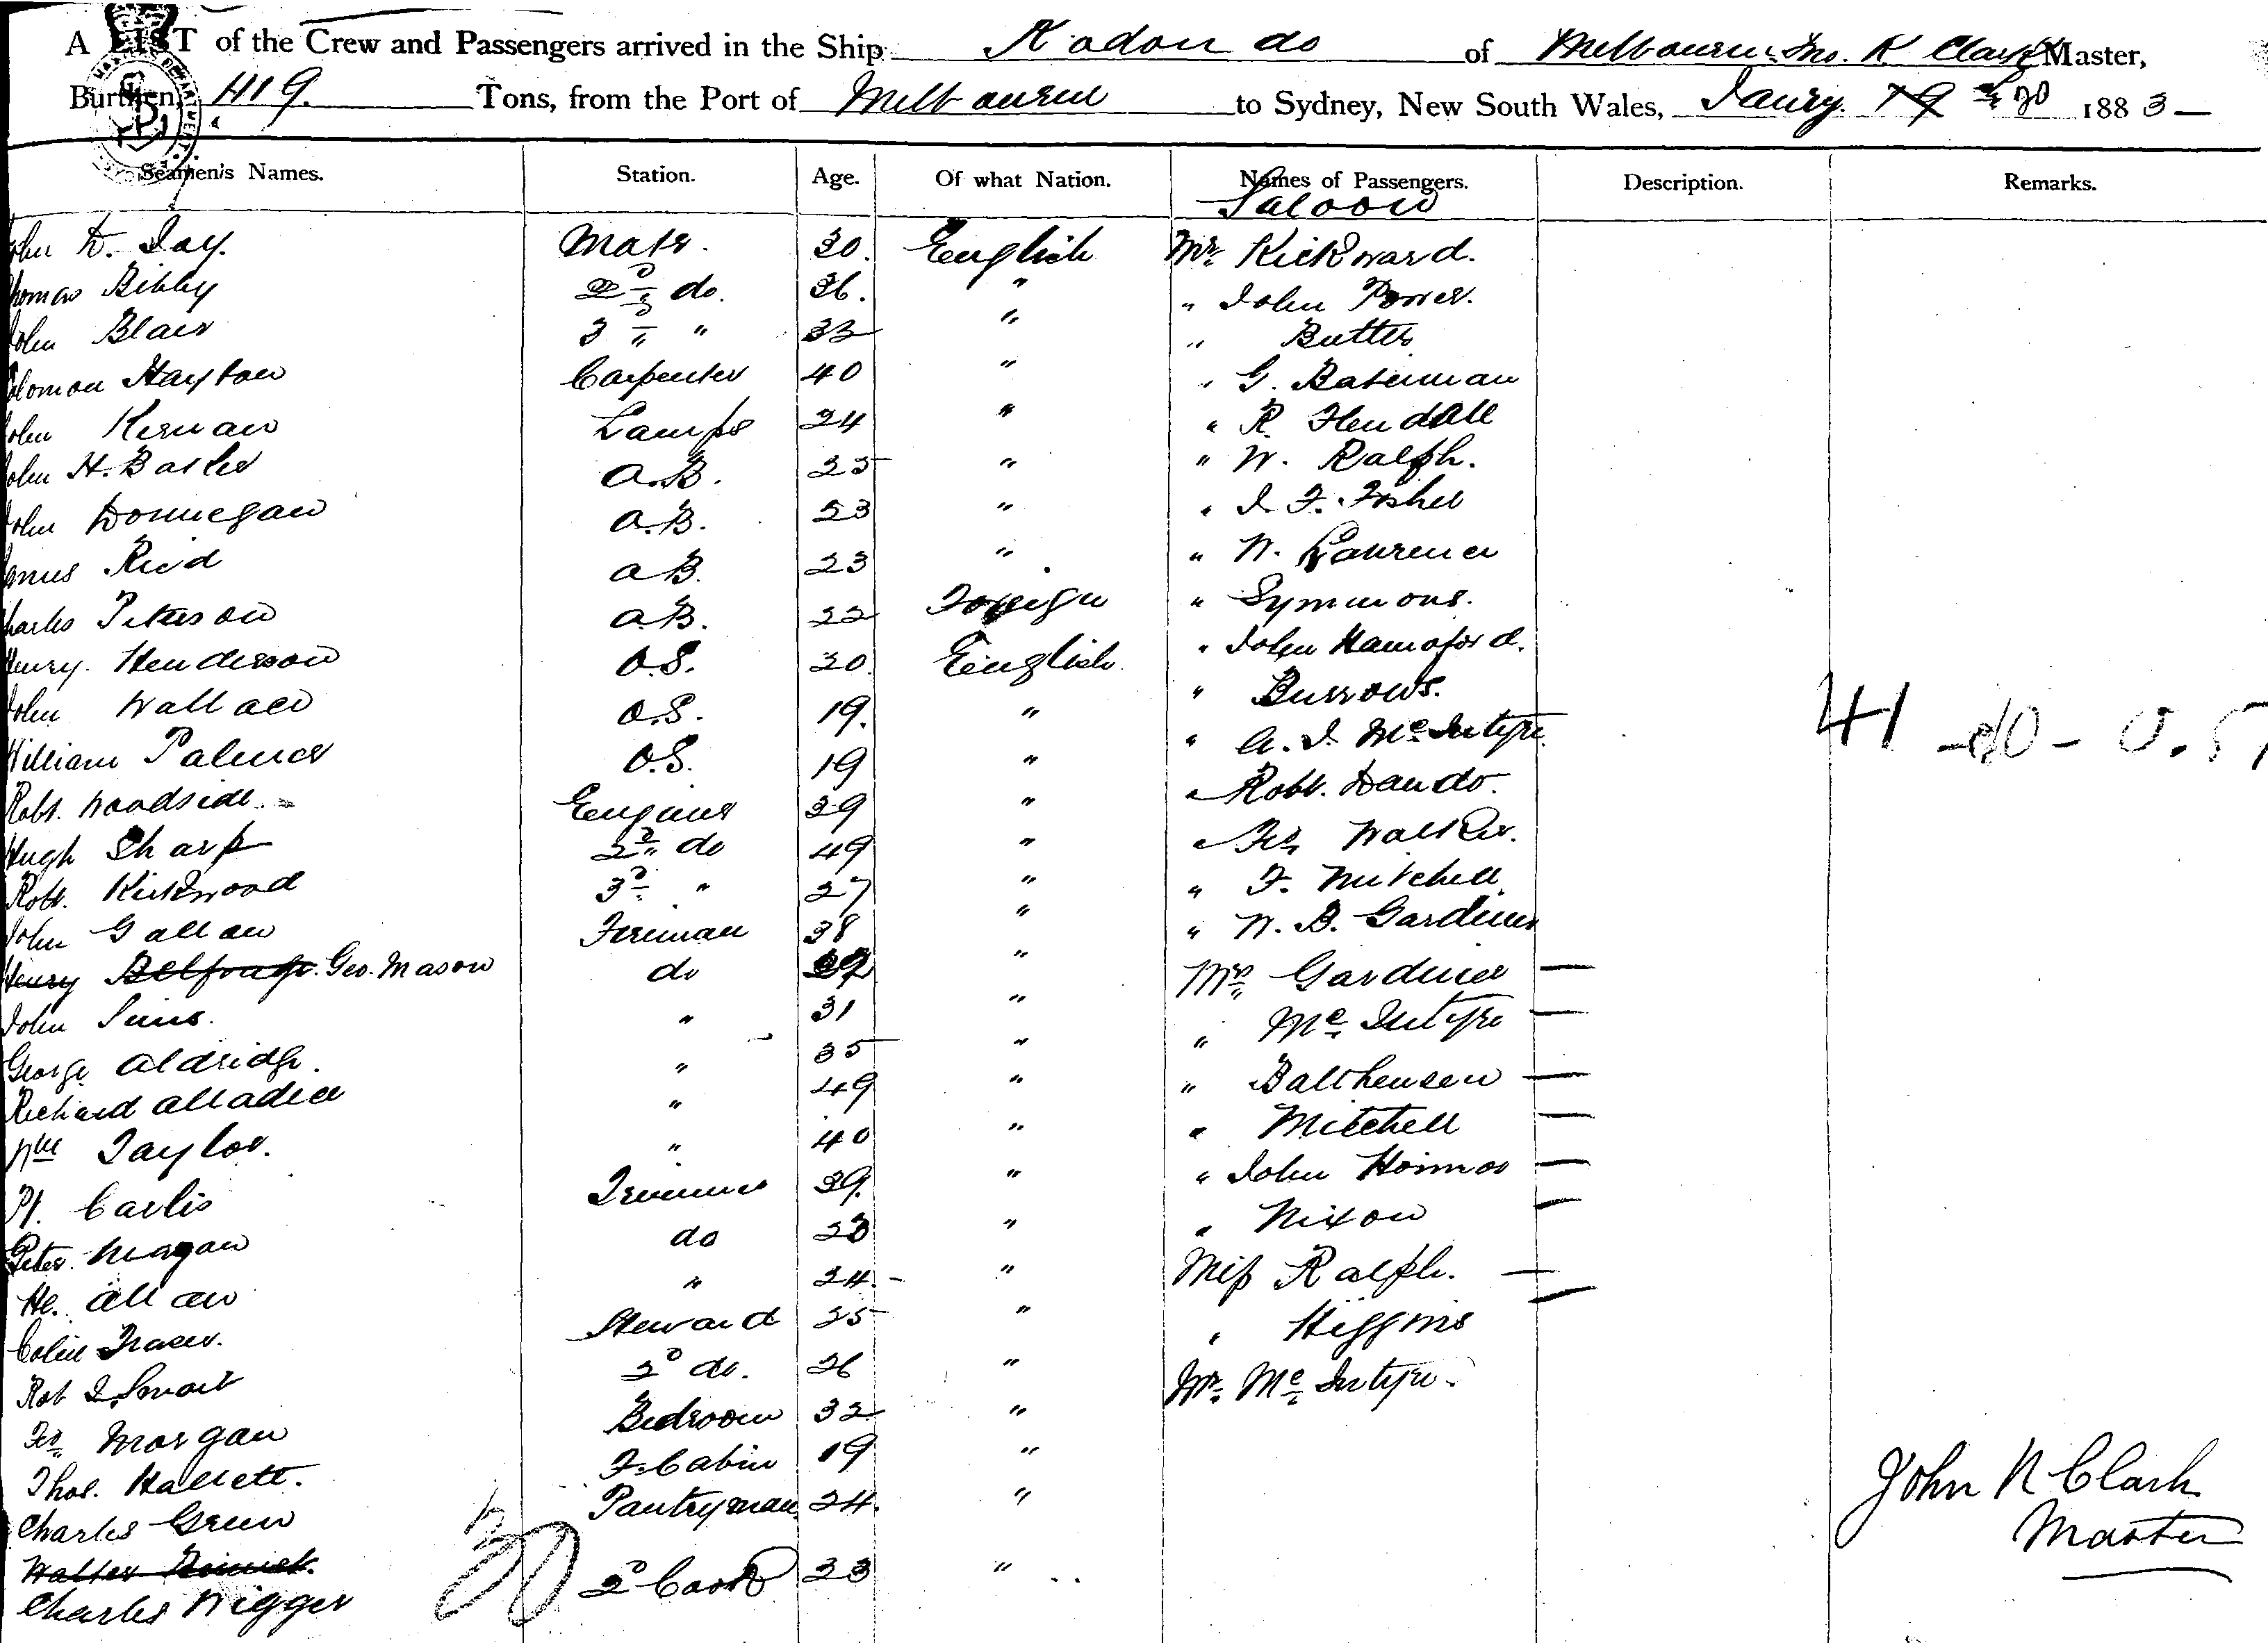 A LIST of the Crew and Passengers arrived in the Ship Rodondo of Melbourne Jno. R Clark Master,
Burthen, 419. Tons, from the Port of Melbourne to Sydney, New South Wales, Jany. 19 20 1883
Seamen's Names. Station. Age. Of what Nation. Names of Passengers. Description. Remarks.
Saloon
John D. Day. Mate. 30. English Mr. Kirkward.
Thomas Bibby 2nd do. 36. " " John Power.
John Blair 3 " 33 " " Butter
Solomon Hayton Carpenter 40 " " G. Bateman
John Kernan Lamps 24 " " R. Hendall
John H. Barker A.B. 25 " " W. Ralph.
John Donnegan A.B. 23 " " J. F. Fisher
James Reid AB. 23 " " W. Lawrence
Charles Peterson A.B. 22 Foreign " Symmons.
Henry. Henderson O.S. 20. English " John Hannaford.
John Wallace O.S. 19. " " Burrows.
William Palmer O.S. 19 " " A. J. Mc Intyre
41
Robt. Woodside Engineer 39 " " Robt. Dando.
Hugh Sharp 2nd do 49 " " Walker.
Robt. Kirkwood 3 " 27 " " F. Mitchell
John Gallan Fireman 38 " " W. B. Gardiner
Henry Belfrage. Geo. Mason do " Mrs Gardiner
John Sims. " 31 " " Mc Intyre
George Aldridge. " 35 " " Balthensen
Richard Alladice " 49 " " Mitchell
Wm Taylor. " 40 " " John
Carlis Trimmer 39. " " Nixon
Peter Magan do 23 " Miss Ralph.
Allan " 24. " " Higgins
Colin Fraser. Steward 25 " Mr. Mc Intyre
Rob J. Smart 2 do. 26 "
Morgan Bedroom 32 "
Thos. Hallett. F. Cabin 19 "
Charles Green Pantryman 24. "
Walter
Charles Wigger 2 Cook 23 "
30
John R Clark
Master